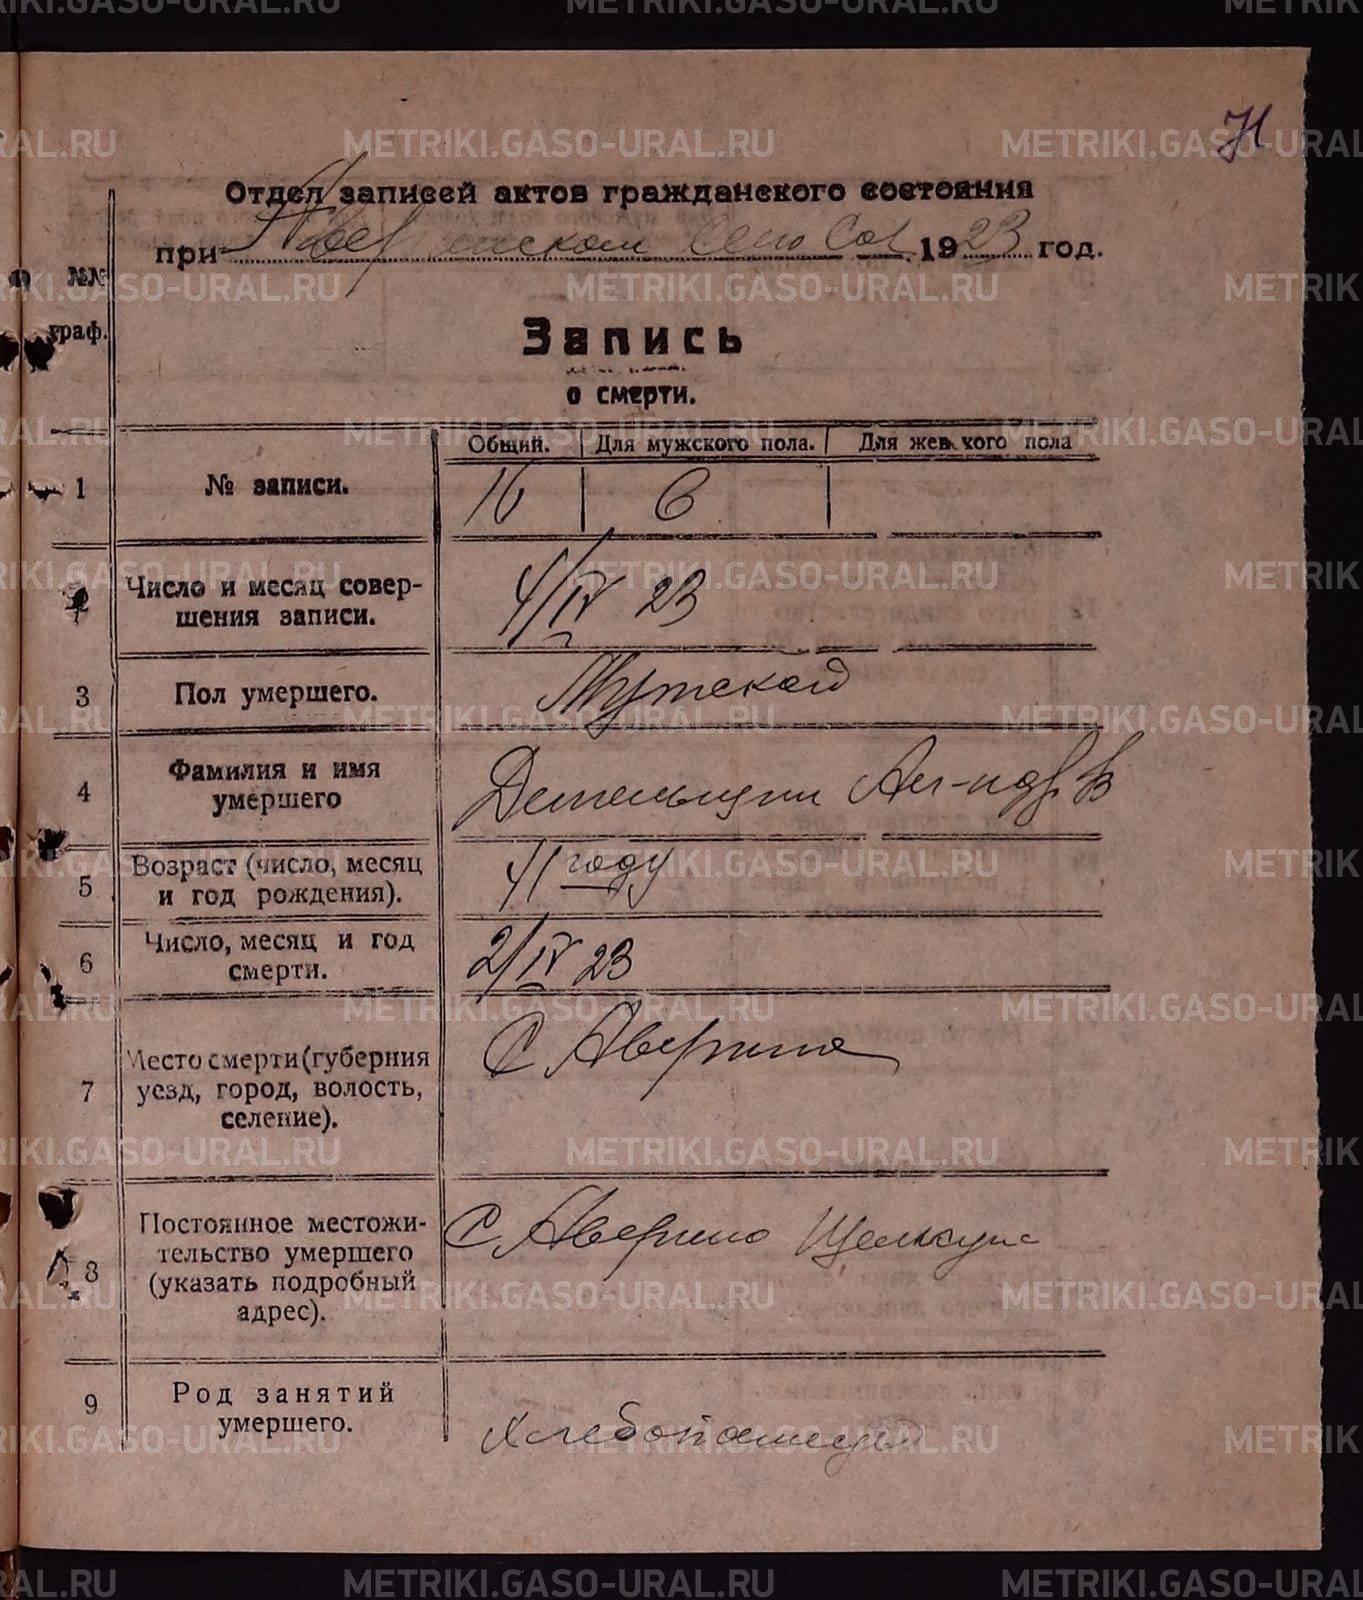 71
Отдел записей актов гражданского состояния
при Аверинском Сель Сов. 1923 год.
№№ граф.
Запись
о смерти.
Общий. Для мужского пола. Для женского пола
1 № записи. 16 6
2 Число и месяц совершения записи. 4/IV 23
3 Пол умершего. Мужской
4 Фамилия и имя умершего
5 Возраст (число, месяц
и год рождения). 41 году
6 Число, месяц и год
смерти. 2/IV 23
7 Место смерти (губерния
уезд, город, волость,
селение). С Аверино
8 Постоянное местожи-
тельство умершего
(указать подробный
адрес). С Аверино Щелкун
9 Род занятий
умершего. хлебопашец
METRIKI.GASO-URAL.RU